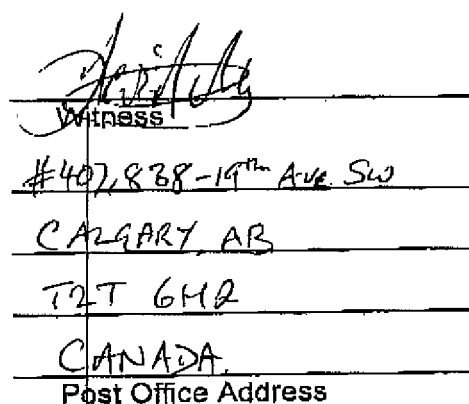 Witness
#407, 838-19th Ave. SW
CALGARY, AB
T2T 6H2
CANADA.
Post Office Address